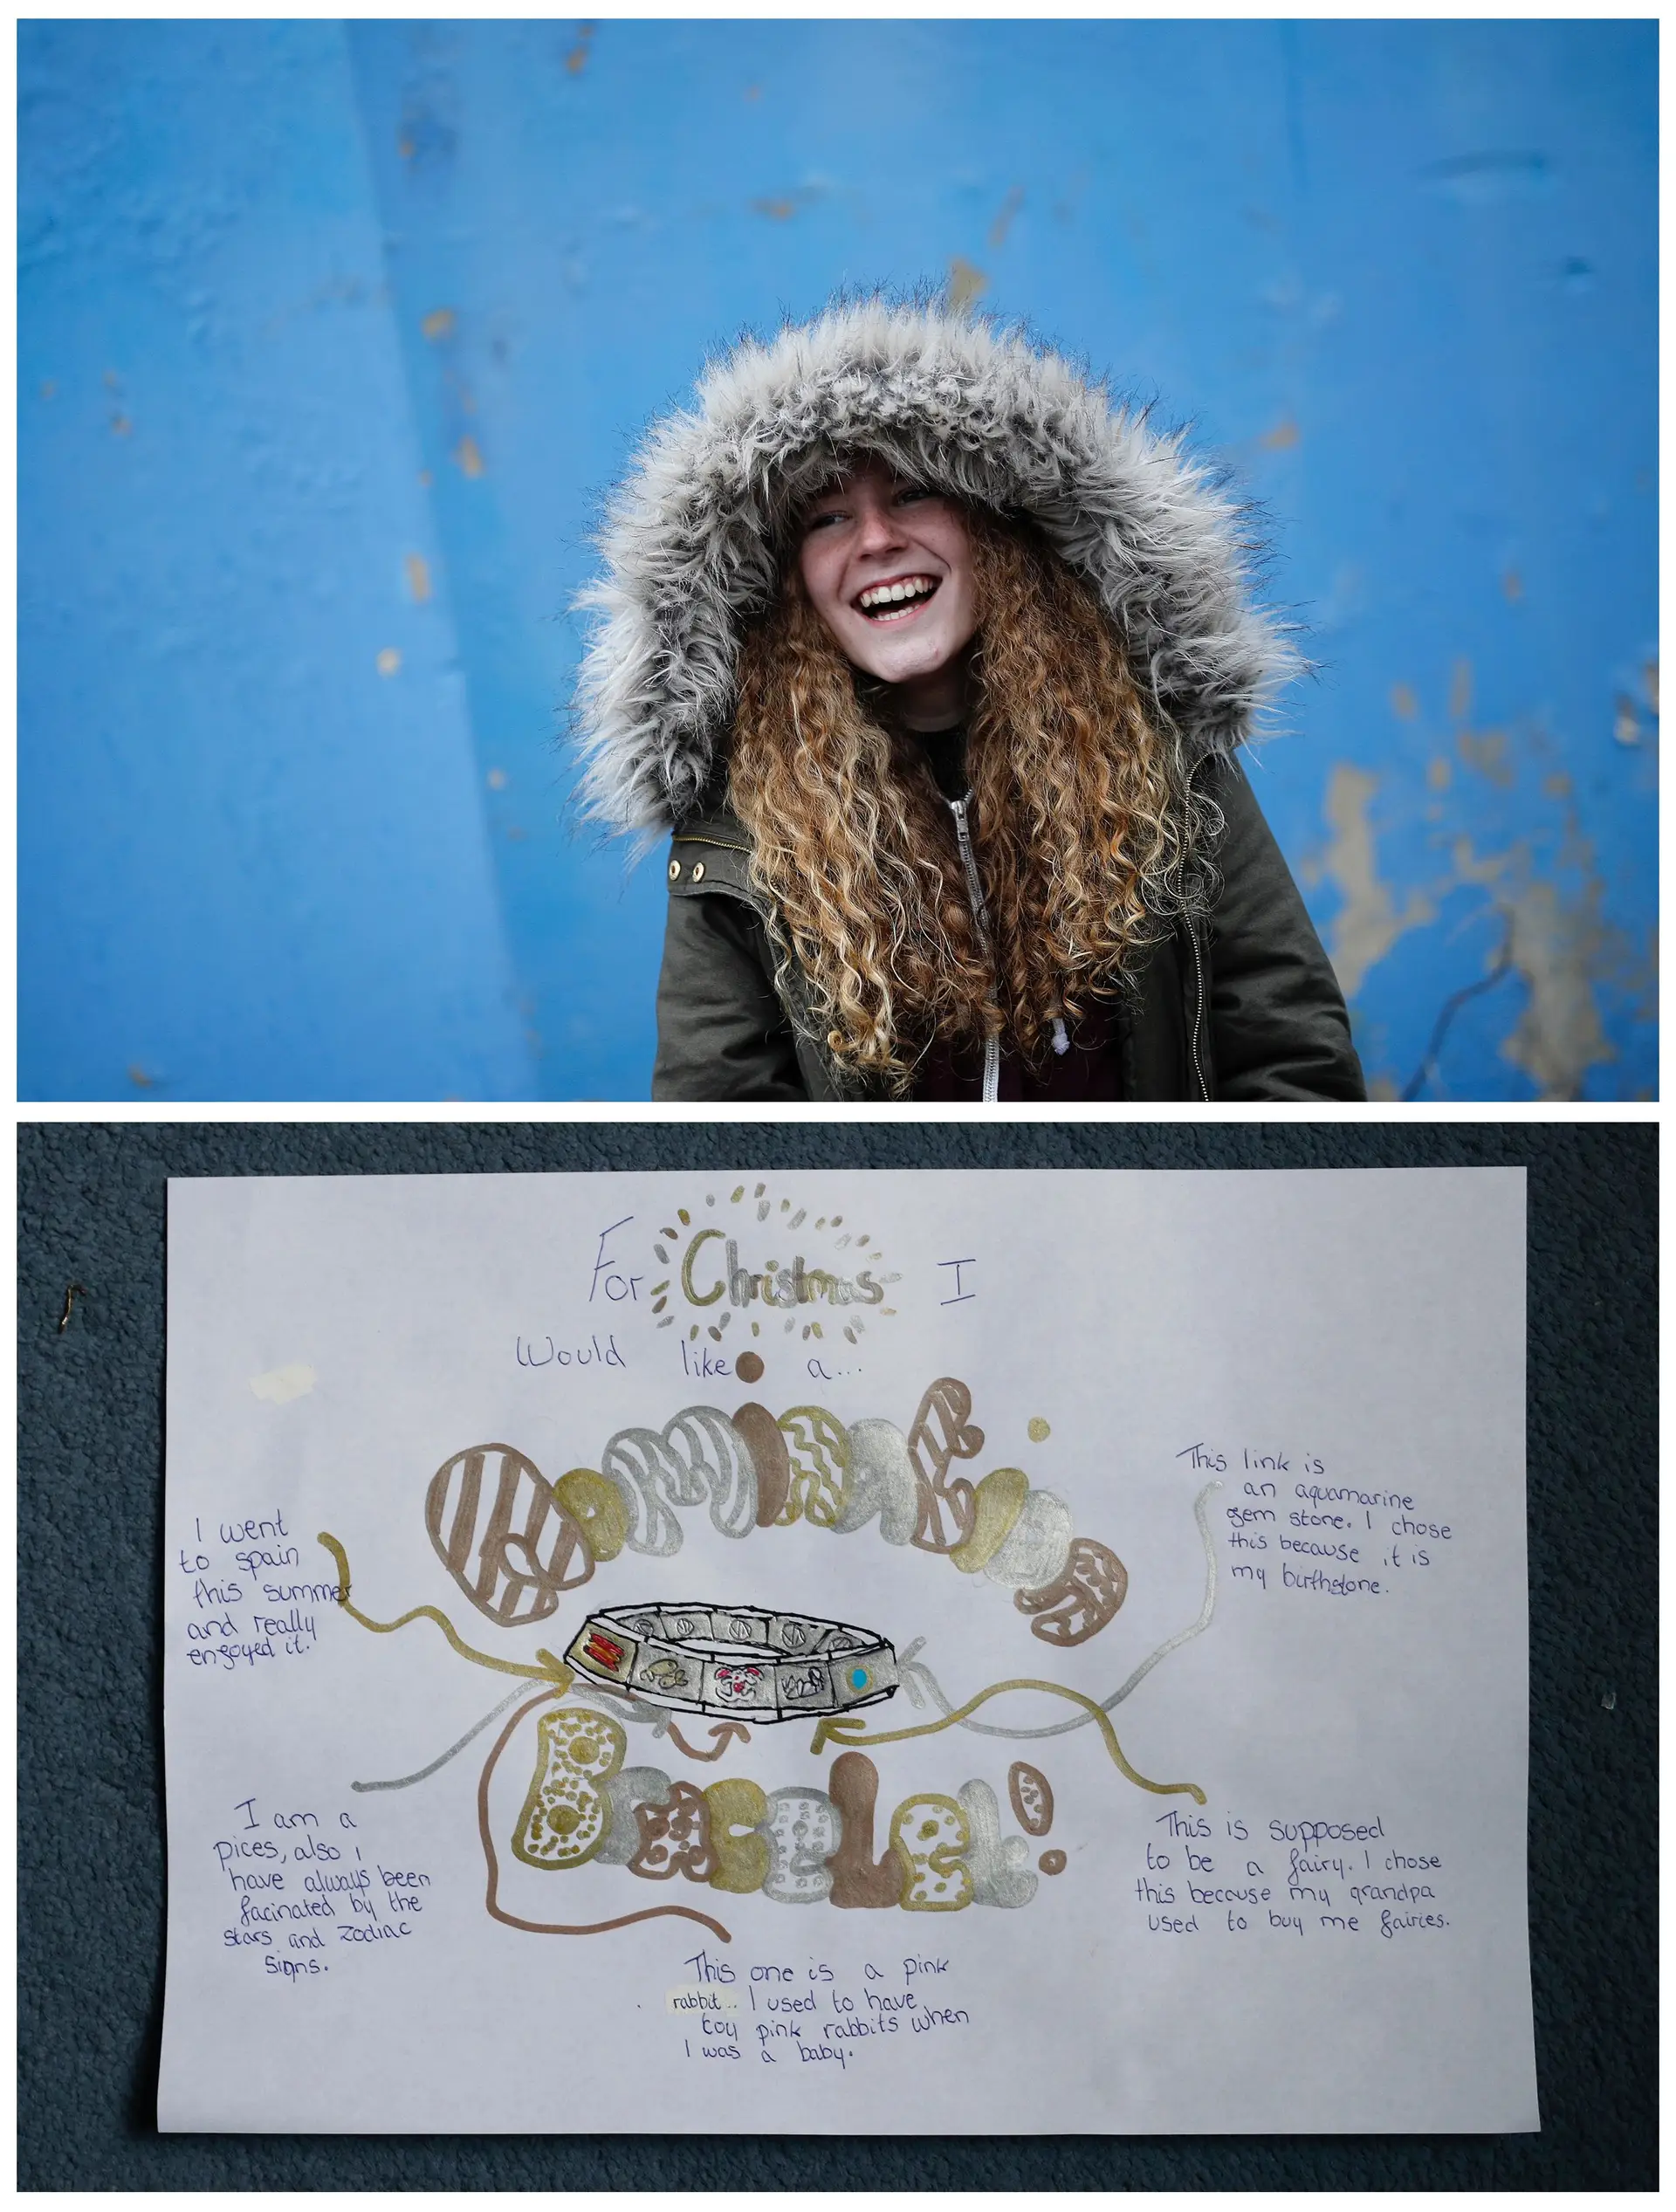 For Christmas I
Would like a...
I went
to spain
this summer
and really
engoyed it.
This link is
an aquamarine
gem stone. I chose
this because it is
my birthstone.
I am a
pices, also i
have always been
facinated by the
stars and zodiac
signs.
This is supposed
to be a fairy. I chose
this because my grandpa
used to buy me fairies.
This one is a pink
rabbit.. I used to have
toy pink rabbits when
I was a baby.